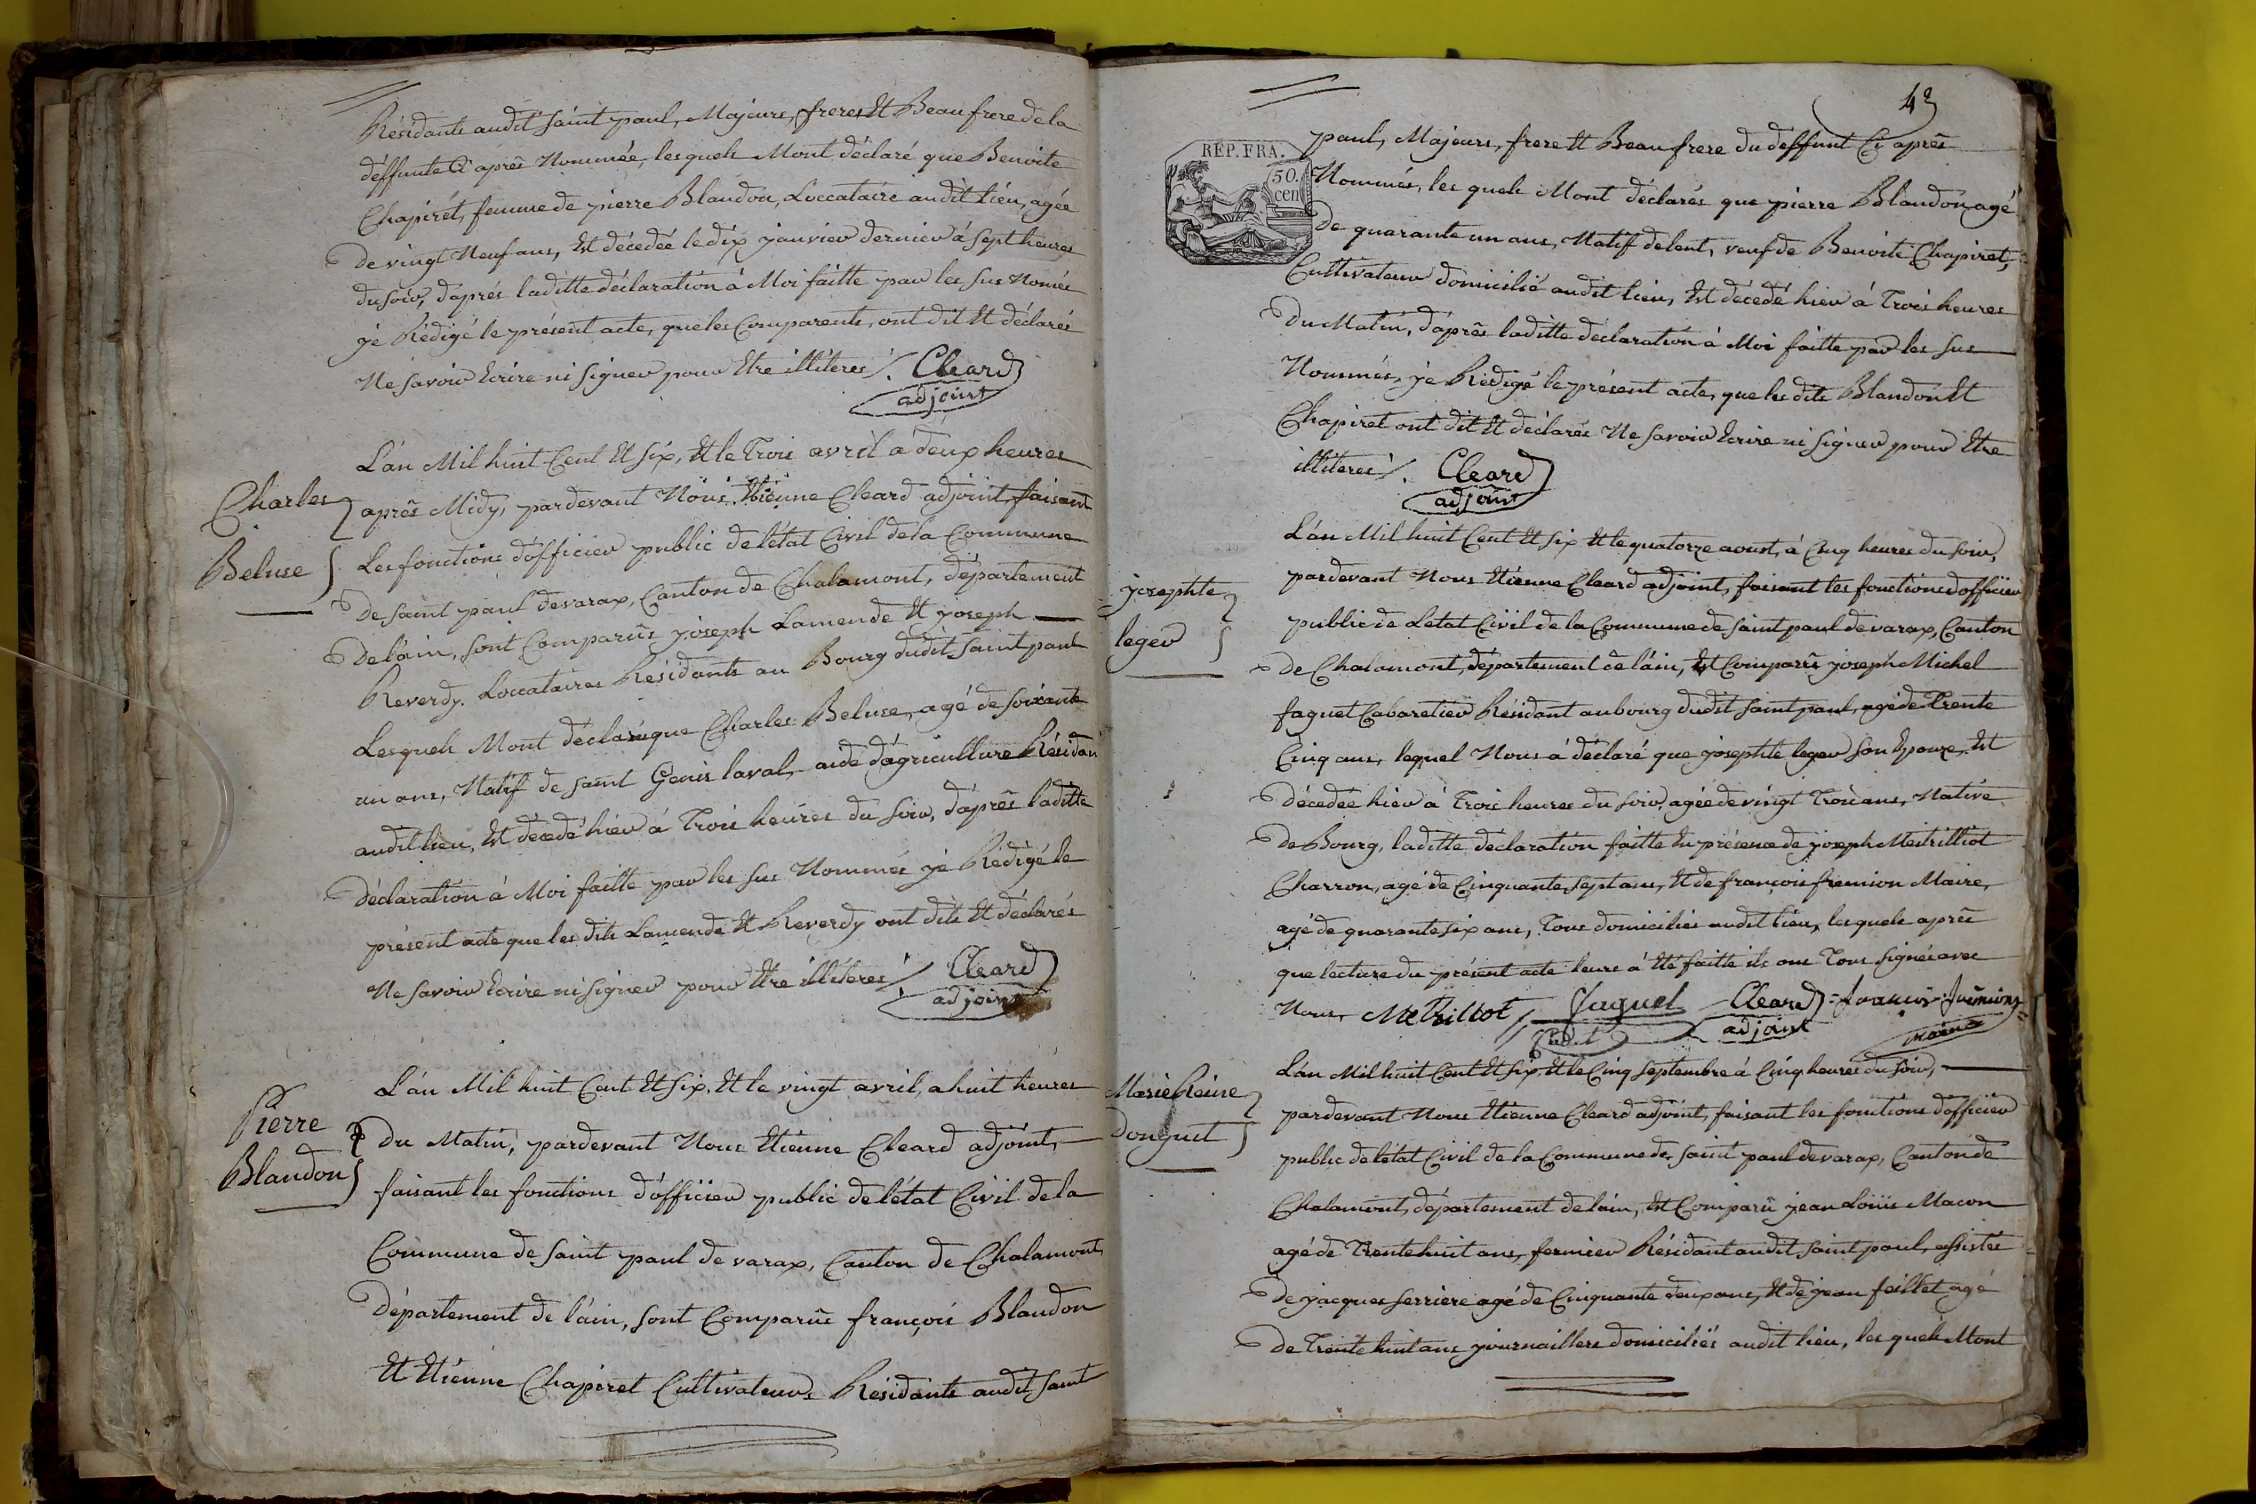 Résidants audit saint paul, Majeurs, freres Et Beaufrere de la
déffunte Ci après Nommée, lesquels Mont déclaré que Benoite
Chapiret, femme de pierre Blandon, Loccataire audit lieu, agée
de vingt Neuf ans, Est décedée le dix janvier dernier á sept heures
du soir, d'aprés laditte déclaration á Moi faitte par les sus Només
jé Rédigé le présent acte, que les Comparents, ont dit Et déclarés
Ne savoir Ecrire ni signer pour Etre illiteres /. Cleard
adjoint
L'án Mil huit Cent Et six, Et le Trois avril a deux heures
Charles
après Midy, pardevant Nous Etienne Cleard adjoint, faisant
Beluse
Les fonctions d'officier public de l'état Civil de la Commune
de saint paul devarax, Canton de Chalamont, département
De l'áin, sont Comparus joseph Lamende Et joseph
Reverdy. Loccataires Résidants au Bourg dudit saint paul
Lesquels Mont déclaré que Charles Beluse, agé de soixante
un ans, Natif de saint Génis laval, aide d'agriculture Résidan
audit lieu, Est décedé hier á Trois heures du soir, d'aprés laditte
déclaration á Moi faitte par les sus Nommés jé Rédigé le
présent acte que les dits Lamende Et Reverdy ont dits Et déclarés
Ne savoir Ecrire ni signer pour Etre illiteres /. Cleard
adjoint
L'án Mil huit Cent Et six, Et le vingt avril, a huit heures
Pierre
Du Matin, pardevant Nous Etienne Cleard adjoint,
Blandon
faisant les fonctions d'officier public de l'état Civil de la
Commune de saint paul de varax, Canton de Chalamont,
département de l'áin, sont Comparus françois Blandon
Et Etienne Chapiret Cultivateurs Résidants audit saint
43
REP. FRA.
50.
cen
paul, Majeurs, frere Et Beaufrere du deffunt Ci aprés
Nommés, les quels Mont déclarés que pierre Blandon agé
De quarante un ans, Natif de lent, veuf de Benoite Chapiret,
Cultivateur domicilié audit lieu, Est décedé hier á Trois heures
Du Matin, d'aprés laditte déclaration á Moi faitte par les sus
Nommés, jé Rédigé le présent acte, que les dits Blandon Et
Chapiret ont dit Et déclarés Ne savoir Ecrire ni signer pour Etre
illiteres /. Cleard
adjoint
L'án Mil huit Cent Et six Et le quatorze aoust, á Cinq heures du soir,
josephte
pardevant Nous Etienne Cleard adjoint, faisant les fonctions d'officier
leger
public de L'etat Civil de la Commune de saint paul de varax, Canton
de Chalamont, département de l'áin, Est Comparu joseph Michel
faguet Cabaretier Résidant au bourg dudit saint paul, agé de Trente
Cinq ans, lequel Nous á déclaré que josephte leger son Epouze, Est
décedée hier á Trois heures du soir, agée de vingt Trois ans, Native
De Bourg, laditte déclaration faitte En présence de joseph Meitrilliot
Charron, agé de Cinquante sept ans, Et de françois fremion Maire,
agé de quarante six ans, Tous domiciliés audit lieu, lesquels aprés
que lecture du présent acte leurs á Eté faitte ils ont Tous signés avec
Nous, Metrillot faguet Cleard
adjoint
maire
L'án Mil huit Cent Et six, Et le Cinq septembre á Cinq heures du soir,
Marie Reine
pardevant Nous Etienne Cleard adjoint, faisant les fonctions d'officier
Donguet
public de l'état Civil de la Commune de saint paul devarax, Canton de
Chalamont, département de l'áin, Est Comparu jean Louis Macon
agé de Trente huit ans, fermier Résidant audit saint paul, assistés
De jacques serriere agé de Cinquante deux ans, Et de jean feillet agé
De Trente huit ans journaillers domiciliés audit lieu, les quels Mont